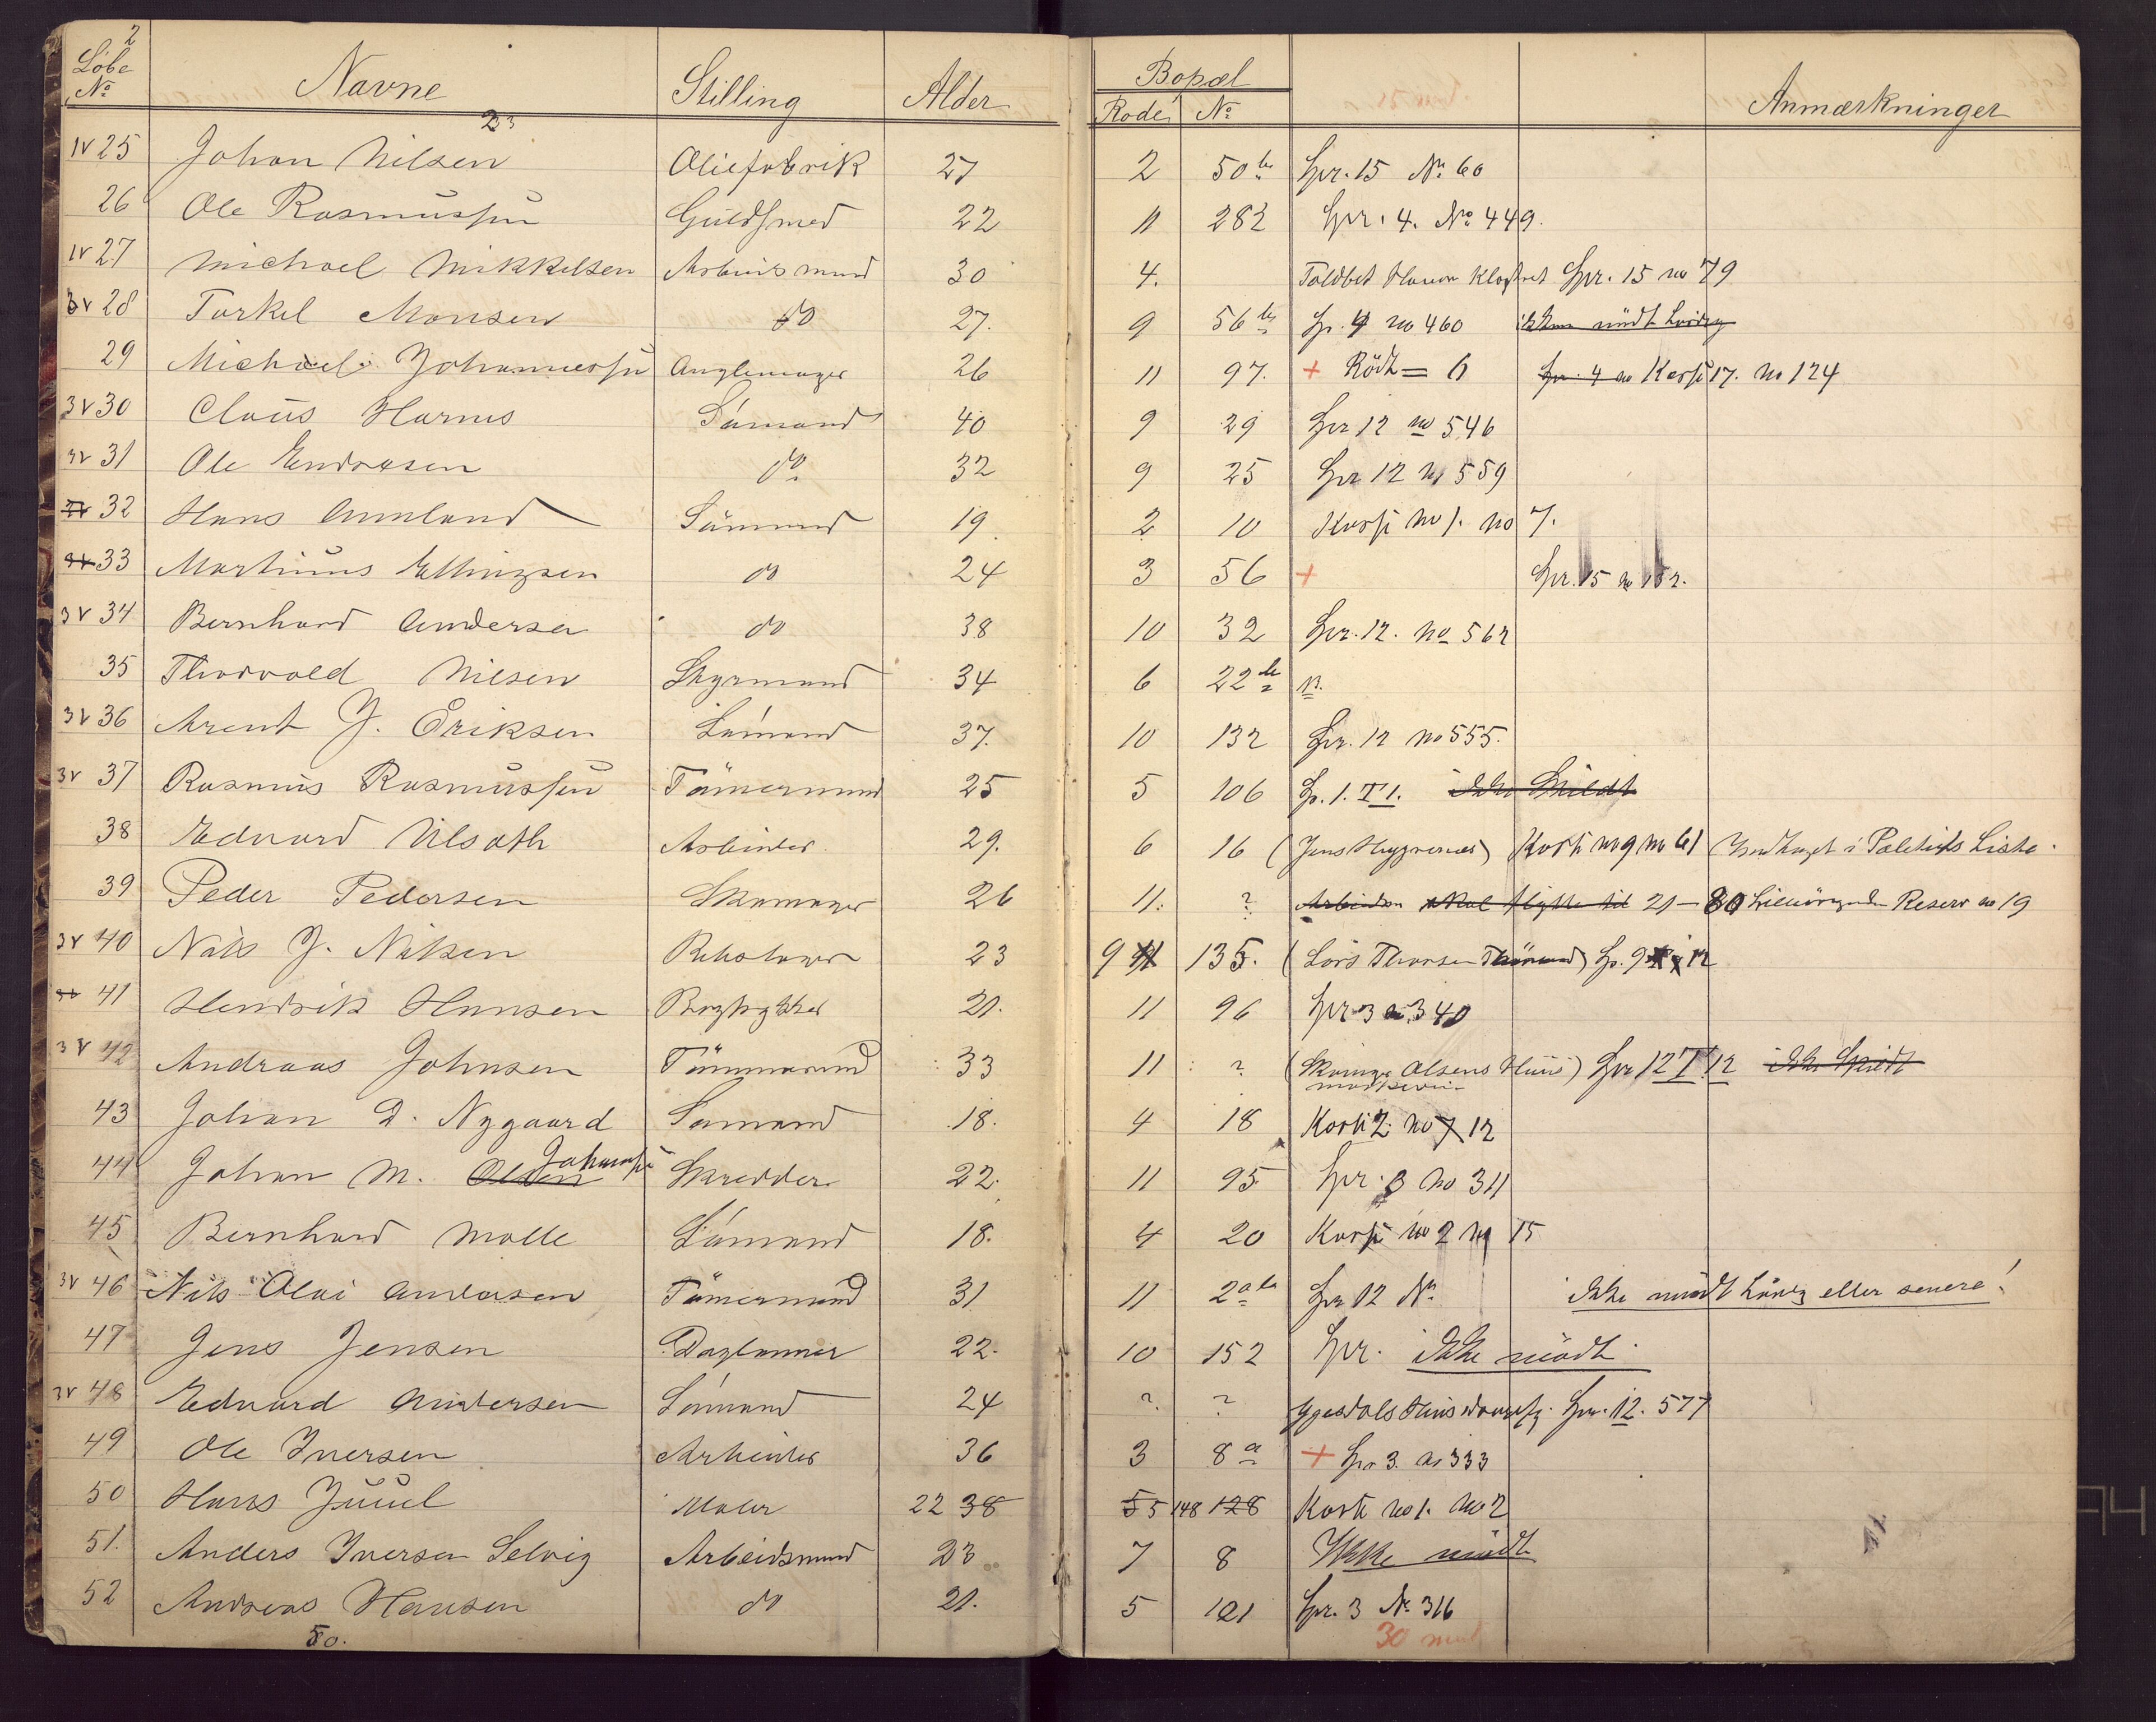 2
Löbe No Navne Stilling Alder Bopæl Rode No Anmærkninger
23
1v 25 Johan Nilsen Oliefabrik 27 2 50 b Spr. 15 No 60
26 Ole Rasmussen Guldsmed 22 11 282 Spr. 4. No 449.
1v 27 Michael Mikkelsen Arbeidsmand 30 4. Toldbet Klostret Spr. 15 no 79
3v 28 Torkel Monsen do 27. 9 56 b Sp. 4 no 460 mödt Lördag
29 Michael Johannessen 26 11 97. + Rödt = 6 Spr. 4 no Kasse 17. no 124
3v 30 Claus Harms Sömand 40 9 29 Spr 12 no 546
3v 31 Ole Endresen do 32 9 25 Spr 12 no 559
32 Hans Aamland Sömand 19. 2 10 Kasse no 1. no 7.
33 Martinus Ellingsen do 24 3 56 + Spr. 15 no 152.
3v 34 Bernhard Andersen do 38 10 32 Spr. 12. no 562
35 Thorvald Nilsen Styrmand 34 6 22 b 13.
3v 36 Arent J. Eriksen Sömand 37. 10 132 Spr. 12 no 555.
3v 37 Rasmus Rasmussen Tömermand 25 5 106 Sp. 1. T 1. Ikke
38 Edvard Ulsath Arbeider 29. 6 16 (Jens) no 9 no 61 i Politiets Liste.
39 Peder Pedersen Skomager 26 11. ? Arbeider skal flytte til 21 — 80 Reserv no 19
3v 40 Nils J. Nilsen 23 9 11 135. (Lars Thorsen) Sp. 9 12
41 Hendrik Hansen Bogtrykker 21. 11 96 Spr 3 no 340
3v 42 Andreas Johnsen Tömmermand 33 11 ? (Olsens Huus) Spr 12 T. 12 Ikke
43 Johan D. Nygaard Sömand 18. 4 18 2. no 7 12
44 Johan M. Olsen Johannsen Skredder 22. 11 95 Spr. 3 no 311
45 Bernhard Molle Sömand 18. 4 20 no 2 no 15
3v 46 Nils Olai Andersen Tömermand 31 11 2 Spr 12 No Ikke mödt Lördag eller senere!
47 Jens Jensen Daglönner 22. 10 152 Spr. Ikke mödt
3v 48 Edvard Andersen Sömand 24 ? ? Spr. 12. 577
49 Ole Iversen Arbeider 36 3 8 a + Spr 3. no 333
50 Hans Juuel Maler 22 38 5 5 148 128 no 1. no 2
51. Anders Iversen Selvig Arbeidsmand 23 7 8 Ikke mödt
52 Andreas Hansen do 21. 5 121 Spr. 3 No 316
50. 30